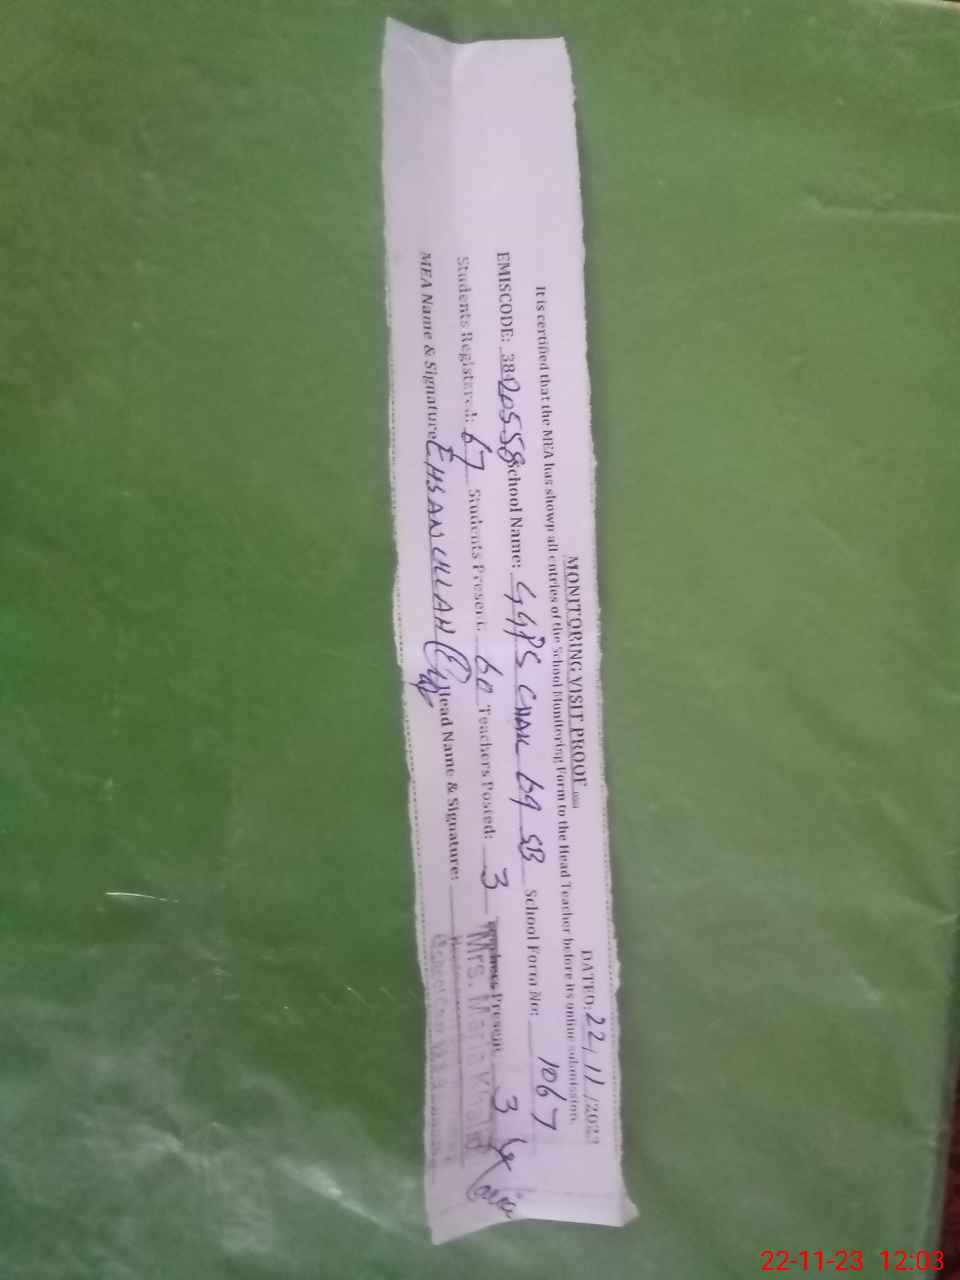 MONITORING VISIT PROOF
DATED: 22/11/2023
It is certified that the MEA has shown all entries of the School Monitoring Form to the Head Teacher before its online submission.
EMISCODE: 38420558 School Name: GGPS CHAK 69 SB School Form No: 1067
Students Registered: 67 Students Present: 60 Teachers Posted: 3 Teachers Present 3
MEA Name & Signature EHSAN ULLAH Head Name & Signature:
Mrs. Maria Khalid
22-11-23 12:03